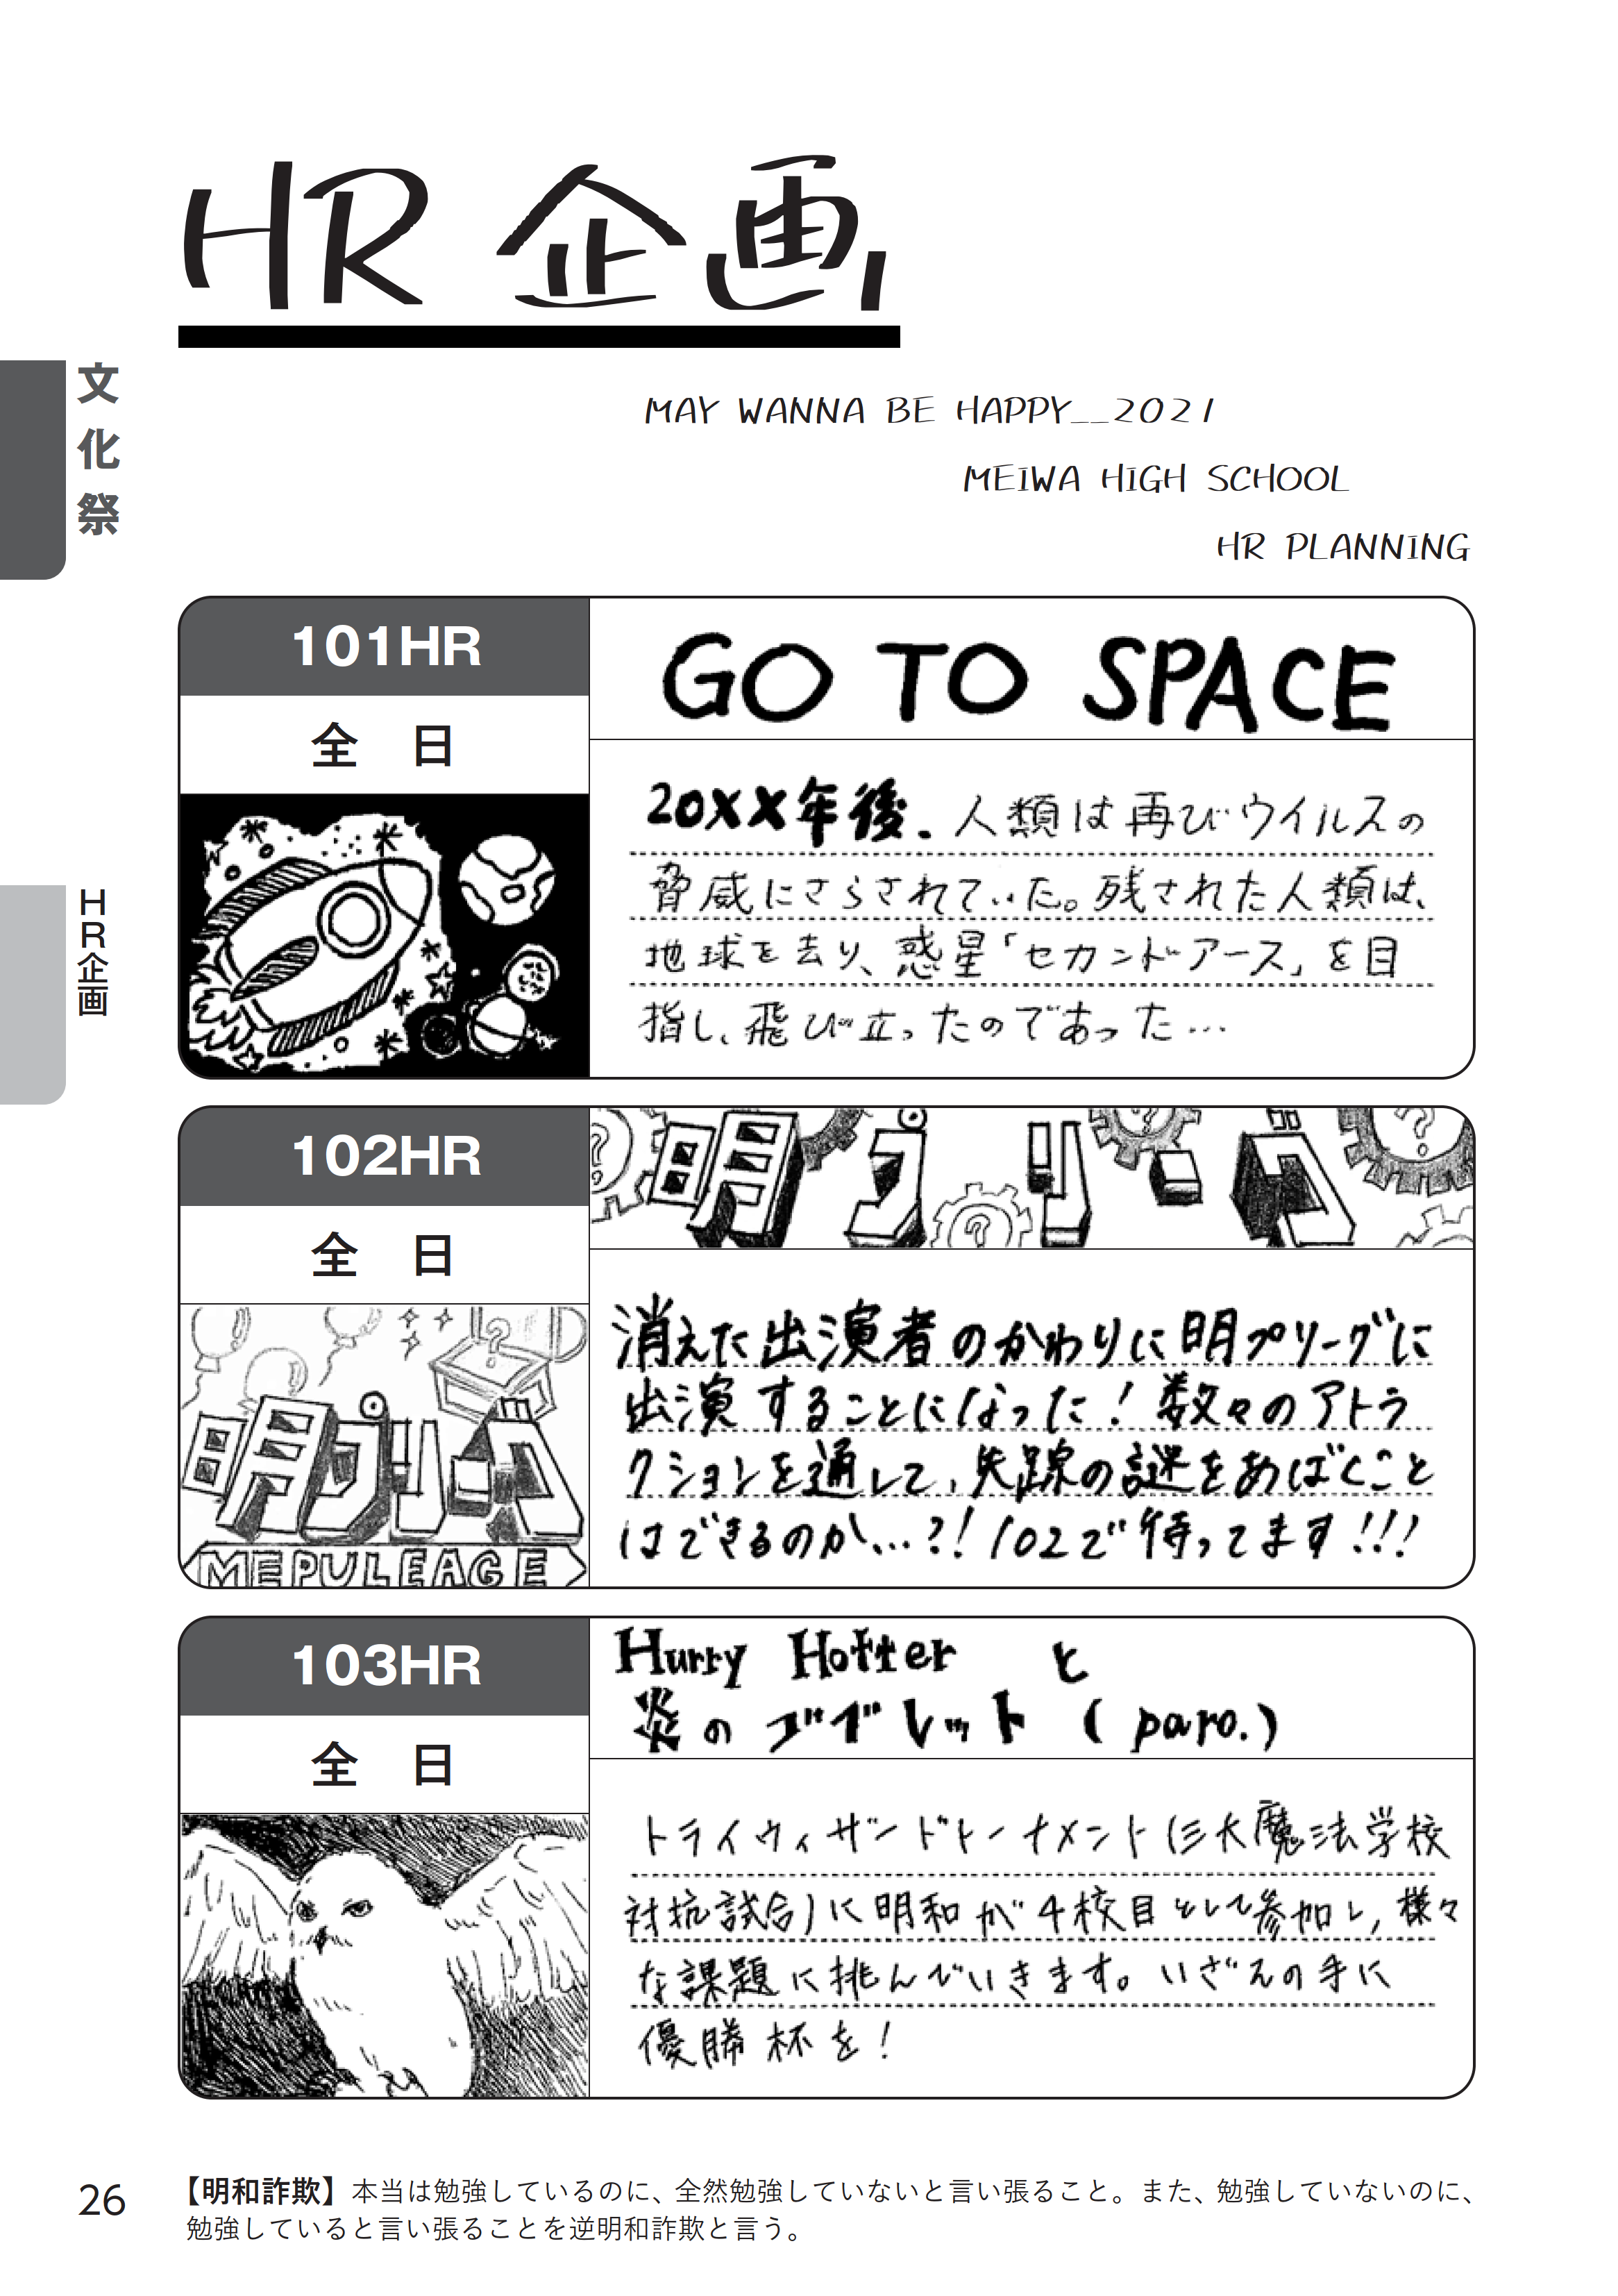 HR 企画
文化祭
HR企画
MAY WANNA BE HAPPY__2021
MEIWA HIGH SCHOOL
HR PLANNING
101HR
全　日
GO TO SPACE
20XX年後、人類は再びウイルスの
脅威にさらされていた。残された人類は、
地球を去り、惑星「セカンドアース」を目
指し、飛び立ったのであった…
102HR
全　日
明プリーグ
明プリーグ
MEPULEAGE
消えた出演者のかわりに明プリーグに
出演することになった！数々のアトラ
クションを通して、失踪の謎をあばくこと
はできるのか…?! 102で待ってます!!!
103HR
全　日
Hurry Hotter と
炎のゴブレット (paro.)
トライウィザードトーナメント(三大魔法学校
対抗試合)に明和が4校目として参加し,様々
な課題に挑んでいきます。いざえの手に
優勝杯を！
26
【明和詐欺】本当は勉強しているのに、全然勉強していないと言い張ること。また、勉強していないのに、
勉強していると言い張ることを逆明和詐欺と言う。